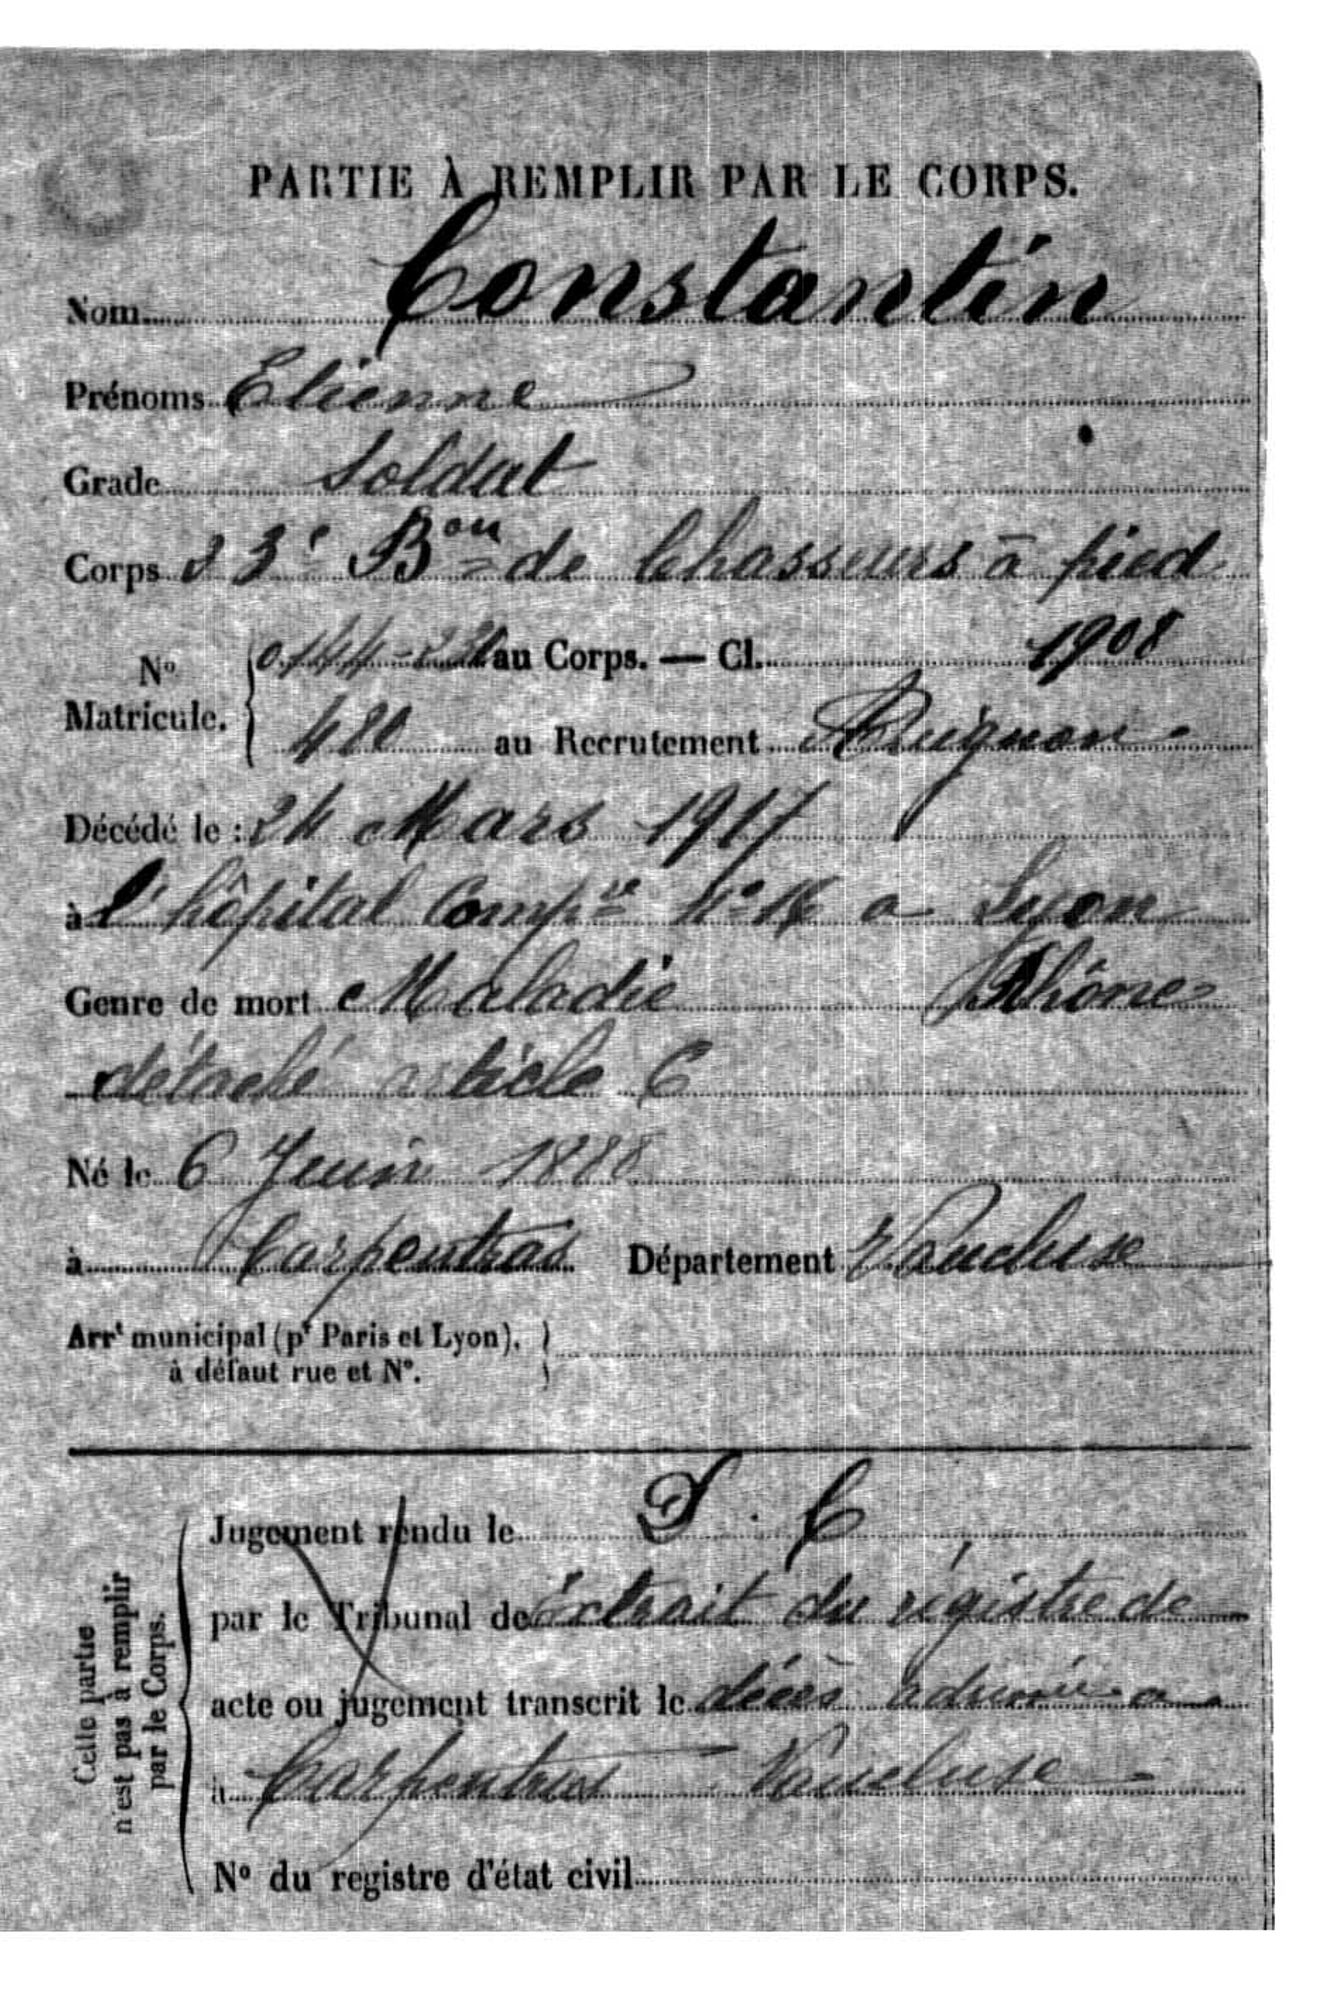 PARTIE À REMPLIR PAR LE CORPS.
Nom Constantin
Prénoms Etienne
Grade Soldat
Corps 23e Bon de Chasseurs à pied
No Matricule. au Corps. — Cl. 1908
480 au Recrutement Avignon
Décédé le : 24 Mars 1917
à l'hôpital Compre No 16 a Lyon
Genre de mort Maladie Rhône
détaché article 6
Né le 6 Juin 1888
à Carpentras Département Vaucluse
Arrt municipal (pr Paris et Lyon), à défaut rue et No.
Cette partie n'est pas à remplir par le Corps.
Jugement rendu le
par le Tribunal de Extrait du régistre de
acte ou jugement transcrit le décès adressé a
à Carpentras Vaucluse
No du registre d'état civil